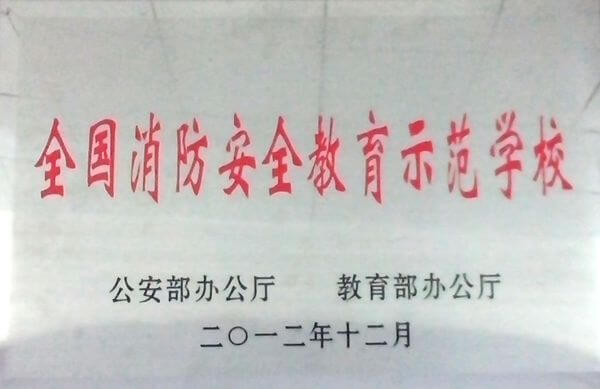 全国消防安全教育示范学校
公安部办公厅 教育部办公厅
二〇一二年十二月